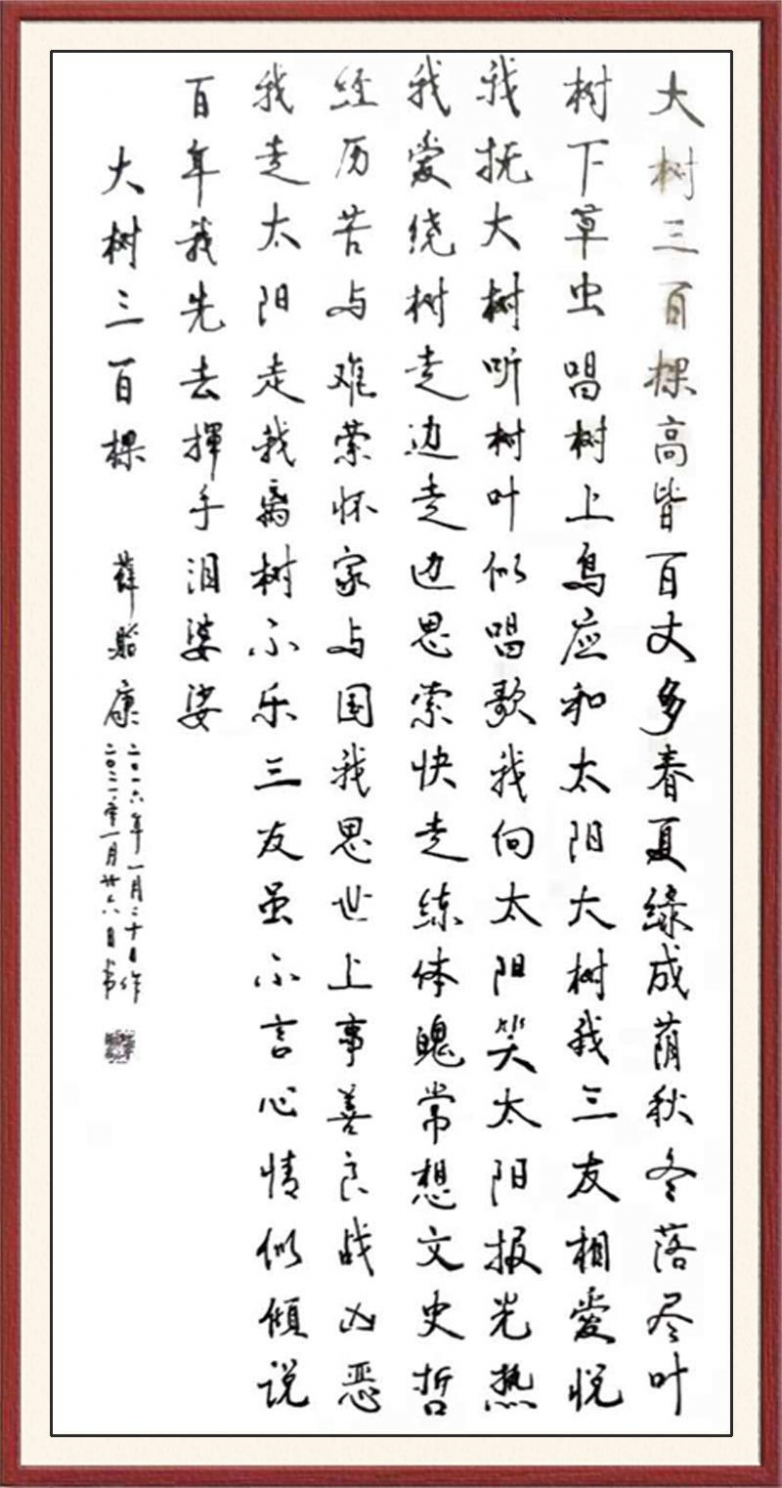 大树三百棵高皆百丈多春夏綠成荫秋冬落尽叶
树下草虫唱树上鸟应和太阳大树我三友相爱悦
我抚大树听树叶似唱歌我向太阳笑太阳报光热
我爱绕树走边走边思索快走练体魄常想文史哲
经历苦与难萦怀家与国我思世上事善良战凶恶
我走太阳走我离树不乐三友虽不言心情似倾说
百年我先去揮手泪婆娑
大树三百棵 薛贻康
二〇一六年一月二十日作
二〇二一年一月廿六日书